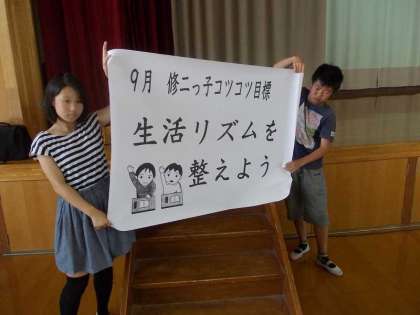 9月 修二っ子コツコツ目標
生活リズムを
整えよう